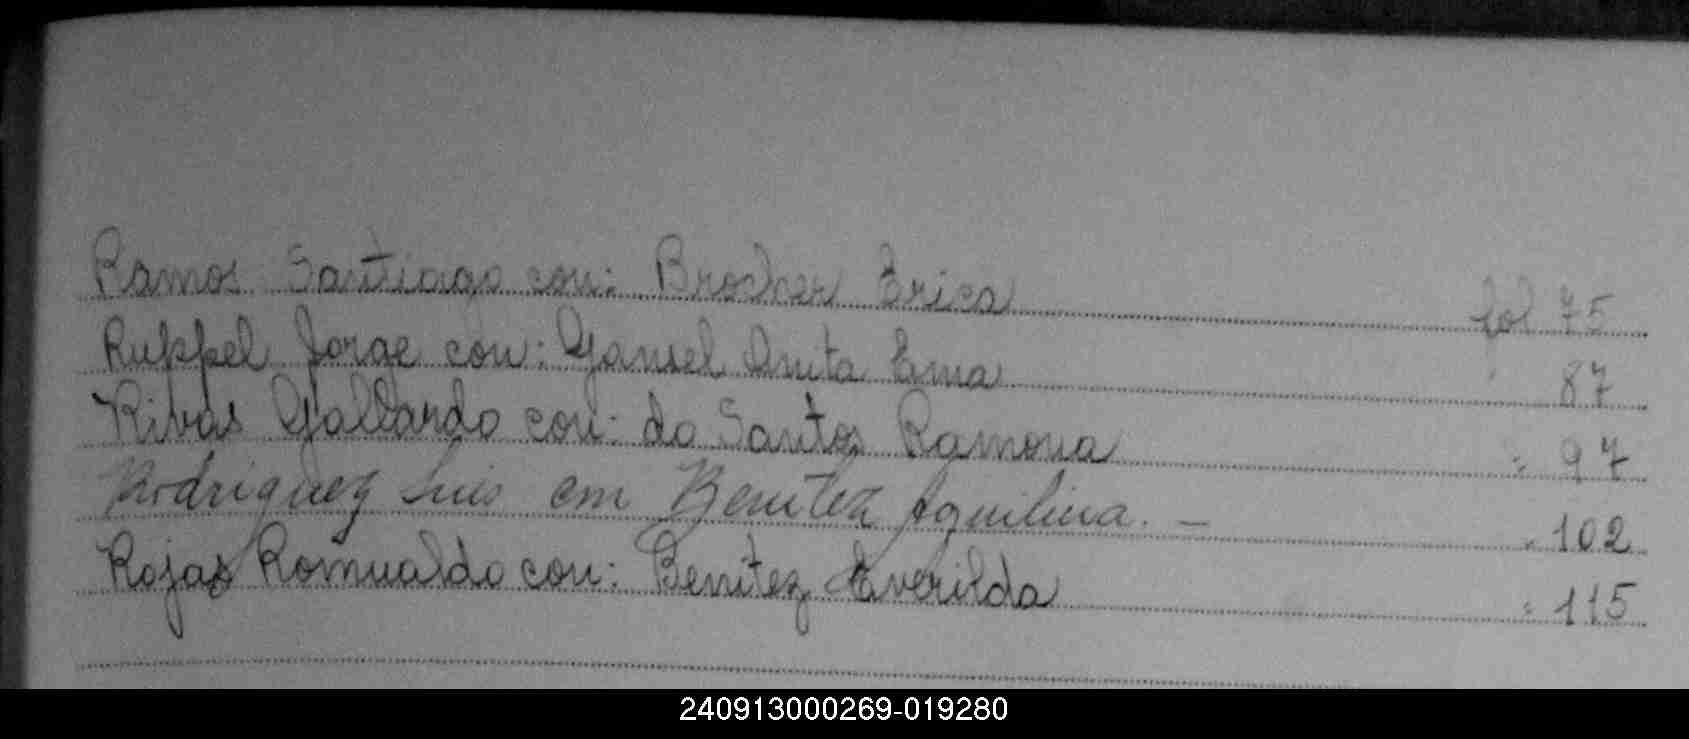 Ramos Santiago con: Brocher Erica fol 75
Ruppel Jorge con: Gansel Anita Ema " 87
Rivas Gallardo con: do Santos Ramona " 97
Rodriguez Luis com Benitez Aquilina. — " 102
Rojas Romualdo con: Benitez Everilda " 115
240913000269-019280